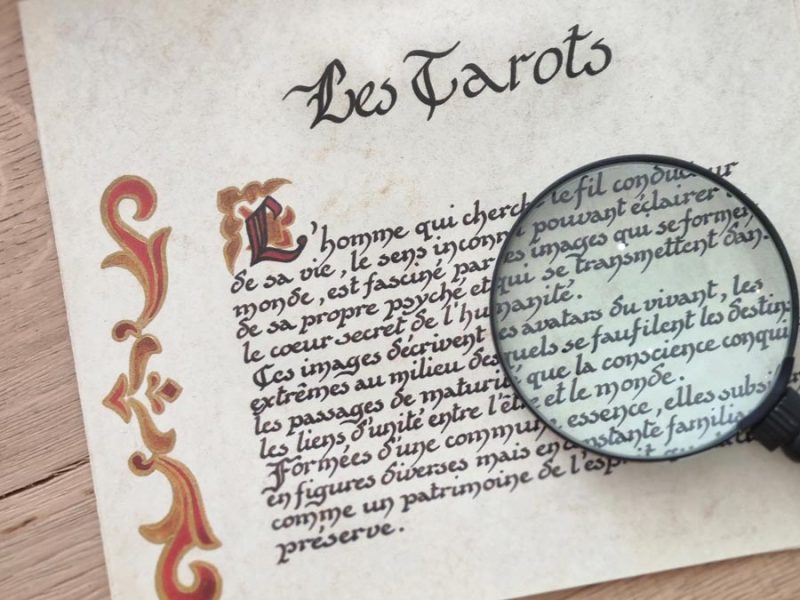 Les Tarots
L'homme qui cherche le fil conducteur
de sa vie, le sens inconnu pouvant éclairer
monde, est fasciné par les images qui se forment
de sa propre psyché et qui se transmettent dans
le coeur secret de l'humanité.
Ces images décrivent les avatars du vivant, les
extrêmes au milieu desquels se faufilent les destins
les passages de maturité que la conscience
les liens d'unité entre l'être et le monde.
Formées d'une commune essence, elles
en figures diverses mais en constante
comme un patrimoine de l'esprit
préserve.